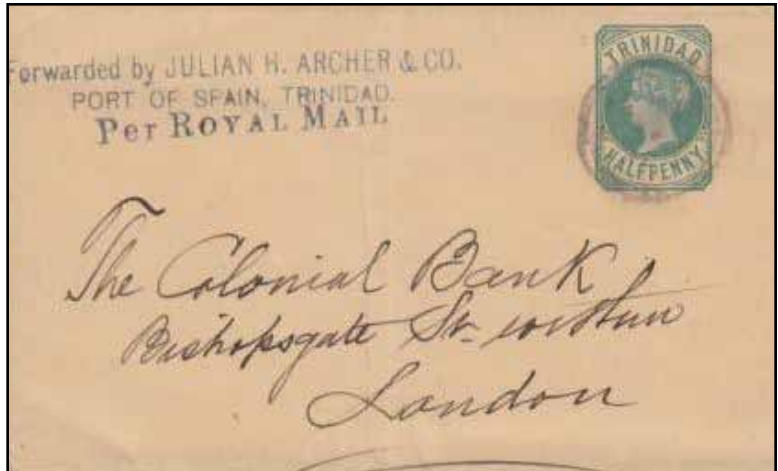 Forwarded by JULIAN H. ARCHER & CO.
PORT OF SPAIN, TRINIDAD.
Per ROYAL MAIL
TRINIDAD
HALFPENNY
The Colonial Bank
Bishopsgate St.
London